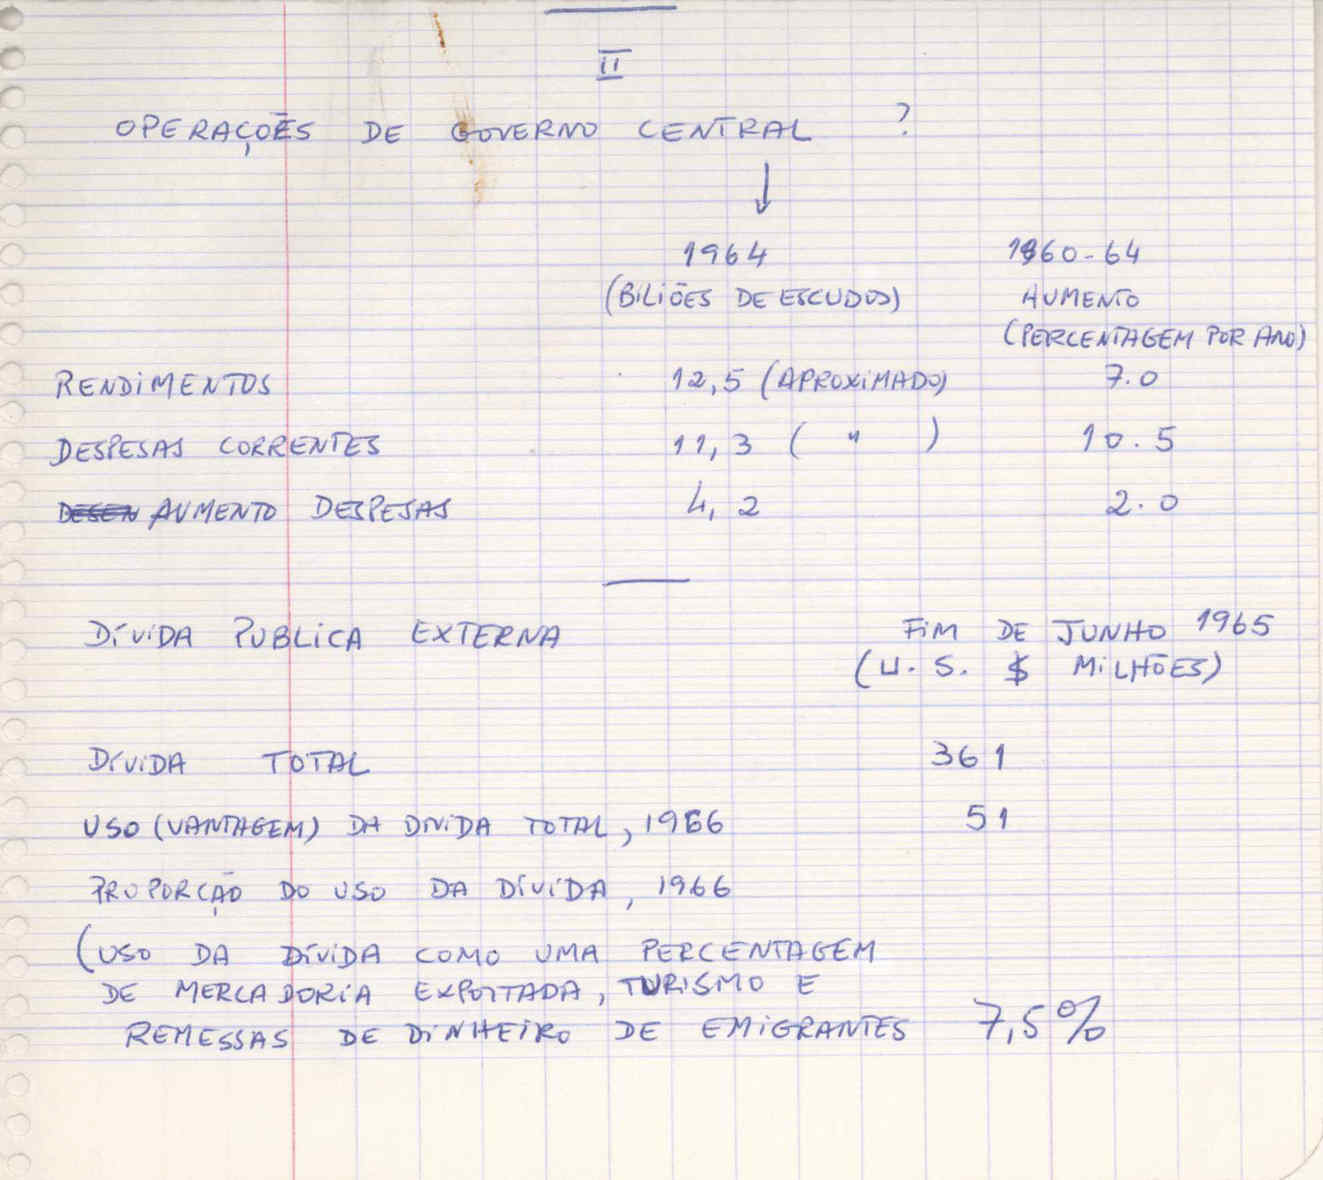 II
OPERAÇOES DE GOVERNO CENTRAL ?
1964 1960-64
(BILIÕES DE ESCUDOS) AUMENTO
(PERCENTAGEM POR ANO)
RENDIMENTOS 12,5 (APROXIMADO) 7.0
DESPESAS CORRENTES 11,3 ( " ) 10.5
AUMENTO DESPESAS 4,2 2.0
DÍVIDA PUBLICA EXTERNA FIM DE JUNHO 1965
(U.S. $ MILHÕES)
DÍVIDA TOTAL 361
USO (VANTAGEM) DA DIVIDA TOTAL, 1966 51
PROPORÇÃO DO USO DA DÍVIDA, 1966
(USO DA DÍVIDA COMO UMA PERCENTAGEM
DE MERCADORIA EXPORTADA, TURISMO E
REMESSAS DE DINHEIRO DE EMIGRANTES 7,5%